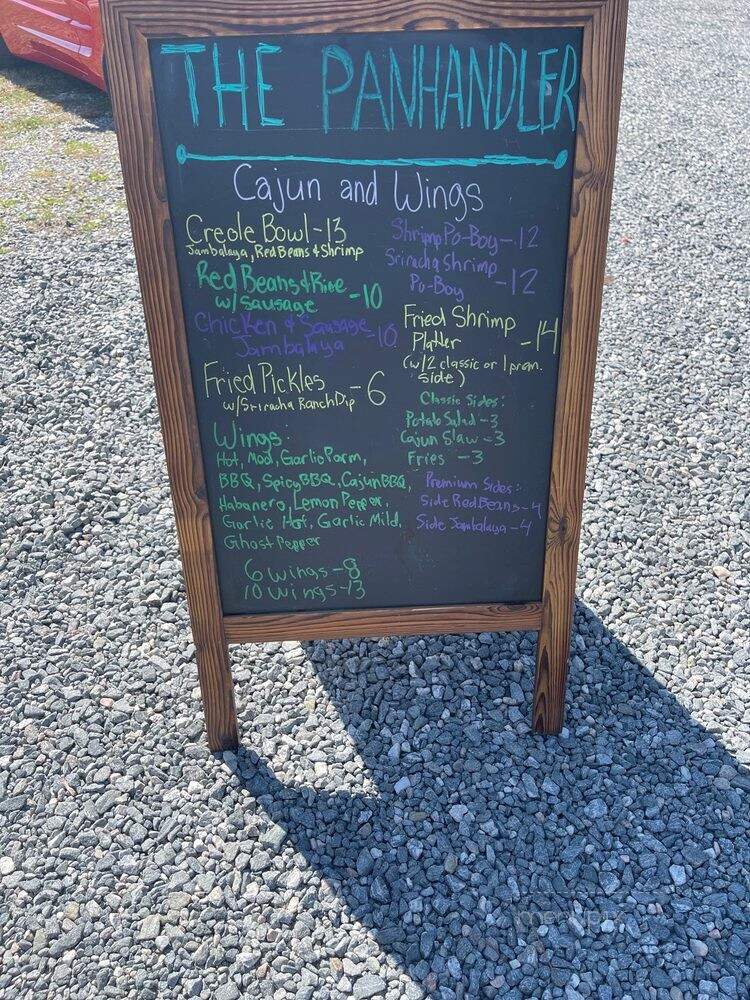 THE PANHANDLER
Cajun and Wings
Creole Bowl - 13
Jambalaya, Red Beans & Shrimp
Red Beans & Rice
w/ sausage - 10
Chicken & Sausage
Jambalaya - 10
Fried Pickles - 6
w/ Sriracha Ranch Dip
Wings:
Hot, Mod, Garlic Parm,
BBQ, Spicy BBQ, Cajun BBQ,
Habanero, Lemon Pepper,
Garlic Hot, Garlic Mild,
Ghost Pepper
6 wings - 8
10 wings - 13
Shrimp Po-Boy - 12
Sriracha Shrimp
Po-Boy - 12
Fried Shrimp
Platter - 14
(w/ 2 classic or 1 prem.
side)
Classic Sides:
Potato Salad - 3
Cajun Slaw - 3
Fries - 3
Premium Sides:
Side Red Beans - 4
Side Jambalaya - 4
menupix